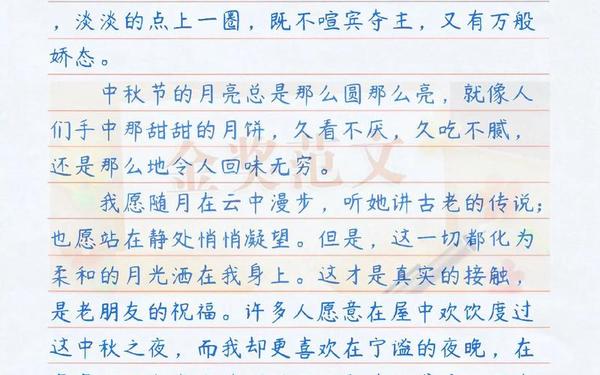 ，淡淡的点上一圈，既不喧宾夺主，又有万般
娇态。
中秋节的月亮总是那么圆那么亮，就像人
们手中那甜甜的月饼，久看不厌，久吃不腻，
还是那么地令人回味无穷。
金奖范文
我愿随月在云中漫步，听她讲古老的传说；
也愿站在静处悄悄凝望。但是，这一切都化为
柔和的月光洒在我身上。这才是真实的接触，
是老朋友的祝福。许多人愿意在屋中欢饮度过
这中秋之夜，而我却更喜欢在宁谧的夜晚，在